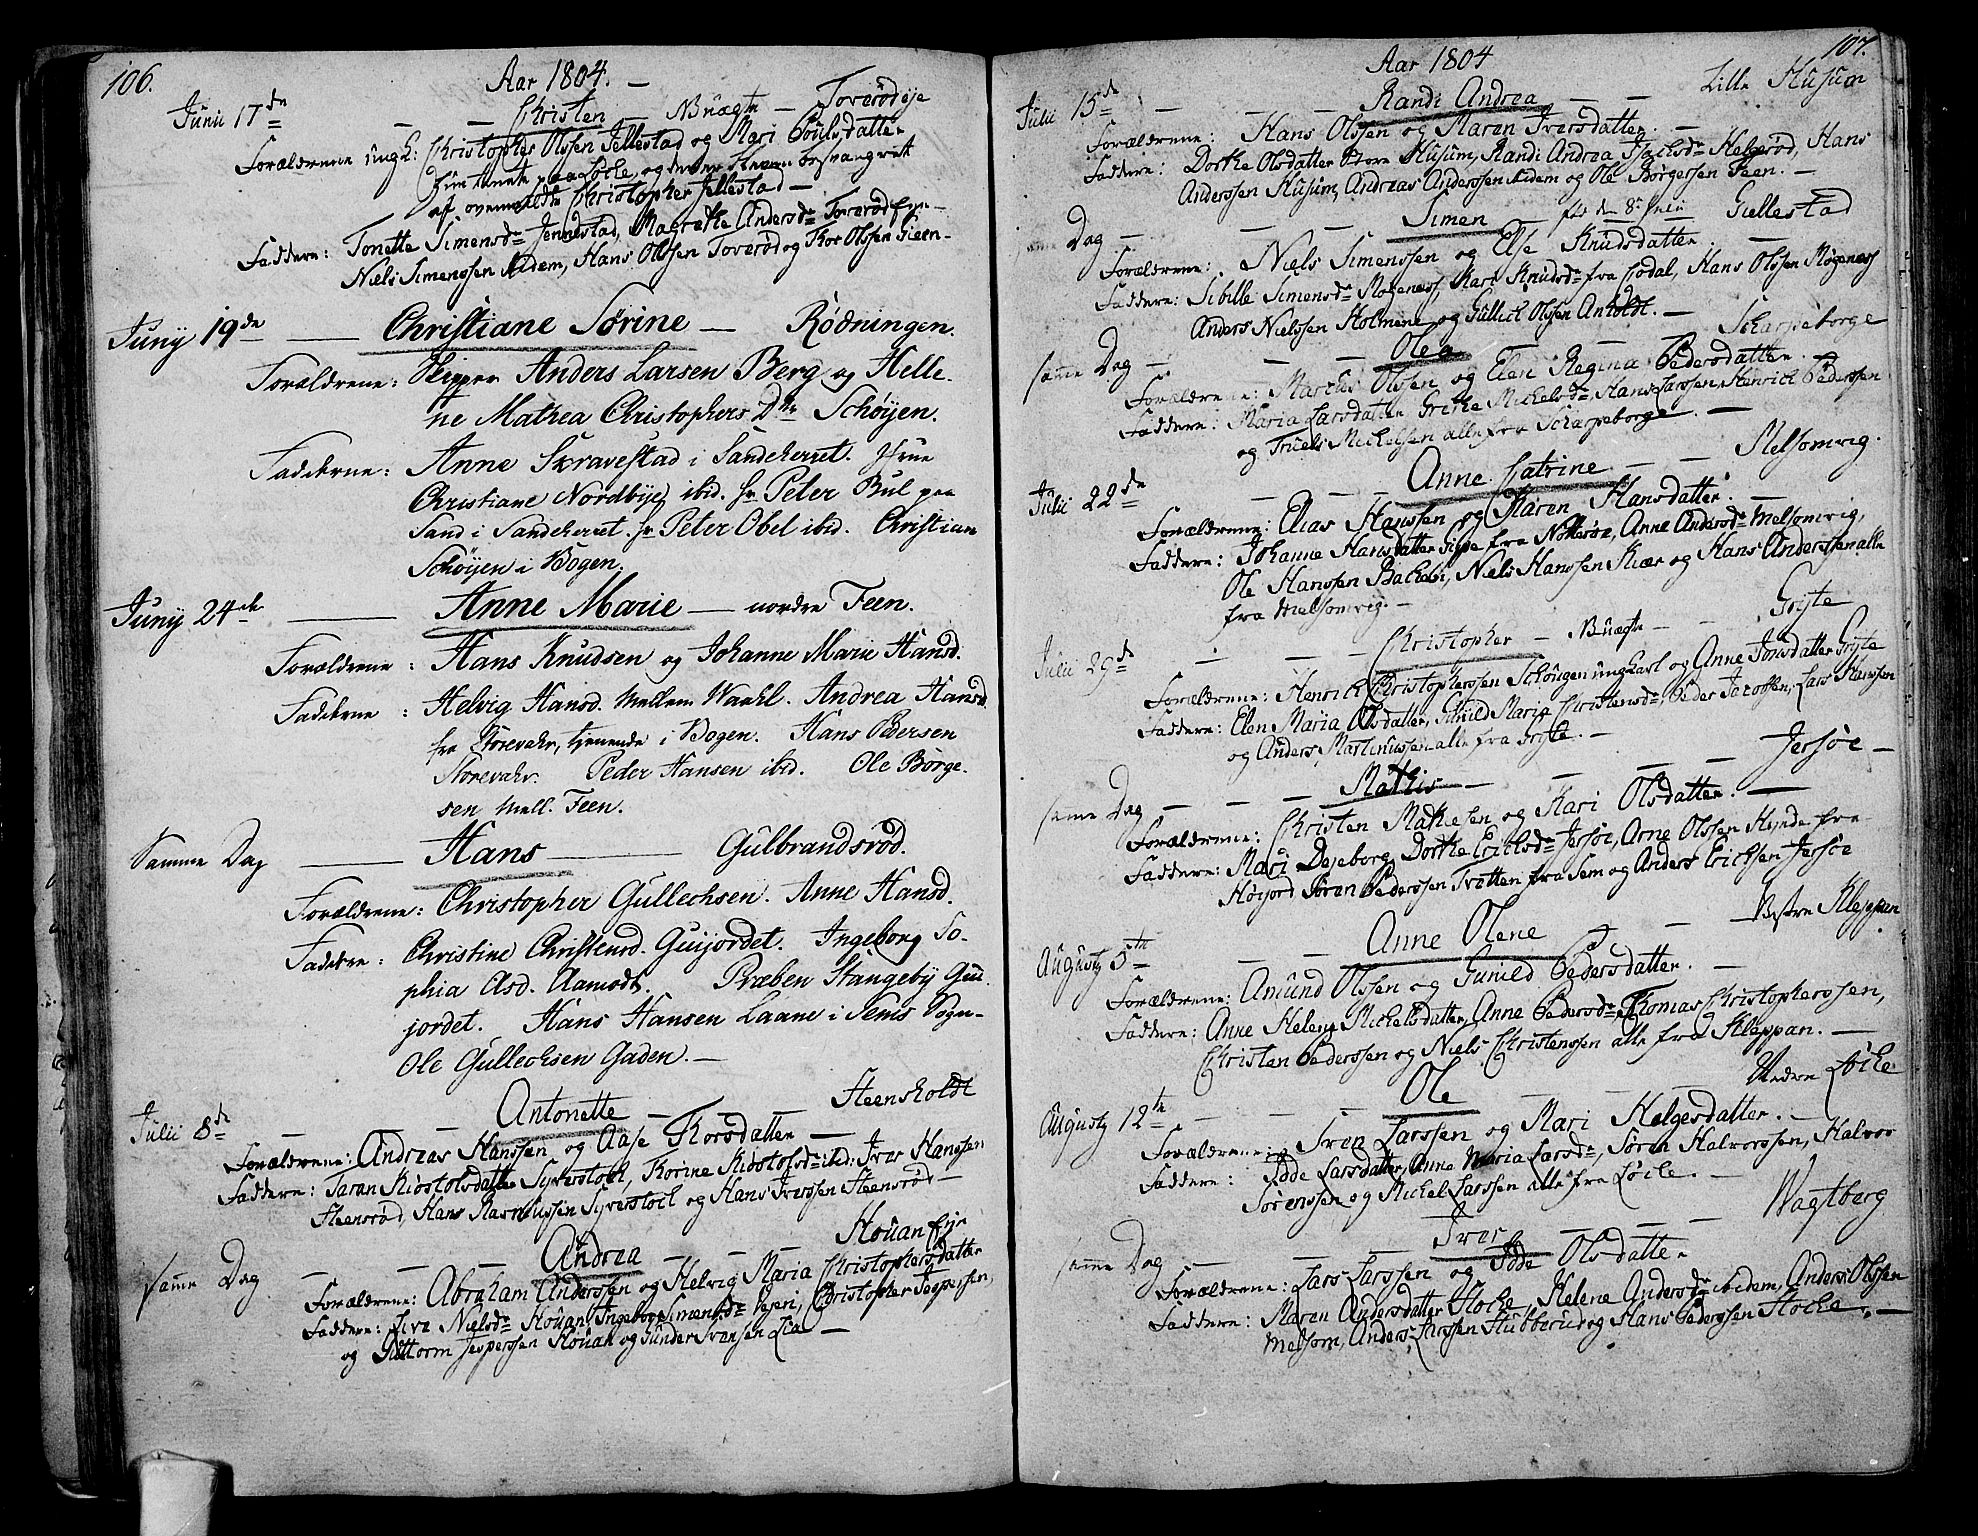 106.
Aar 1804. —
Junii 17de — — Christen — Uuægte — Toverødeje
Forældrene ungk: Christopher Olssen Jellestad og Mari Poulsdatter
hun tiente paa Løcke, og
af ovenmeldte Christopher Jellestad —
Faddere: Tonette Simensdr Jennestad, Magrethe Andersdr Toverødeje —
Niels Simenssen ibidem, Hans Olssen Toverød og Thor Olssen Gieen —
Juny 19de — Christiane Sørine — Rødningen.
Forældrene: Skipper Anders Larsen Berg og Helle-
ne Mathea Christophers Dtr Schøyen.
Fadderne: Anne Skravestad i Sandeherret. Frue
Christiane Nordbye ibid. hr Peter Bul paa
Sand i Sandeherret. hr Peter Obel ibid. Christian
Schøyen i Bogen.
Juny 24de — Anne Marie — nordre Feen.
Forældrene: Hans Knudsen og Johanne Marie Hansd.
Fadderne: Helvig Hansd. Mellem Waahl. Andrea Hansd.
fra Storevahr, tjenende i Bogen. Hans Pedersen
Storevahr. Peder Hansen ibid. Ole Børge-
sen Mell. Feen.
Samme Dag — Hans — Gulbrandsrød.
Forældrene: Christopher Gullechsen. Anne Hansd.
Fadderne: Christine Christensd. Guijordet. Ingeborg So-
phia Asd. Aamodt. Præben Stangeby Gui-
jordet. Hans Hansen Laane i Sems Sogn-
Ole Gullechsen Gaden. —
Julii 8de — Antonette — — Steensholdt
Forældrene: Andreas Hanssen og Aase Thorsdatter —
Faddere: Taran Kiøstolsdatter Syverstock, Thorine Kiøstolsdr ibid: Iver Hanssen
Steensrød, Hans Rasmussen Syverstock og Hans Iverssen Steensrød —
samme Dag — Andrea — — Houan eje
Forældrene: Abraham Anderssen og Helvig Maria Christophersdatter
Faddere: Siva Nielsdr Houan, Ingeborg Simensdr Vejeri, Christopher Jespersen,
og Guttorm Jesperssen Houan og Gunder Ivarsen Lia —
107.
Aar 1804
Julii 15de — Randi Andrea — — Lille Husum
Forældrene: Hans Olssen og Maren Iversdatter. —
Faddere: Dorthe Olsdatter Store Husum, Randi Andrea Isachsdr Helgerød, Hans
Anderssen Husum, Andreas Anderssen ibidem og Ole Børgerssen Feen. —
samme Dag — — — Simen fød den 8de Julii Giellestad
Forældrene: Niels Simenssen og Else Knudsdatter. —
Faddere: Sibille Simensdr Røgenæss, Kari Knudsdr fra Lodal, Hans Olssen Røgenæss
Anders Nielssen Holmene og Gullich Olssen Anholdt. —
samme Dag — — — Olea — — Scharpeborge
Forældrene: Marcus Olssen og Elen Regina Pedersdatter.
Faddere: Maria Larsdatter Grethe Michelsdr, Hans Larssen, Henrich Pederssen
og Truels Michelssen alle fra Scharpeborge. —
Julii 22de — — Anne Catrine — — Melsomvig.
Forældrene: Elias Hanssen og Maren Hansdatter. —
Faddere: Johanne Hansdatter Gipe fra Nøtterøe, Anne Andersdr Melsomvig,
Ole Hanssen Bachebi, Niels Hanssen Kiær og Hans Anderssen alle
fra Melsomvig. —
Julii 29de — — Christopher — Uuægte — — Gryte
Forældrene: Henrich Christopherssen Schøugen ungkarl og Anne Jonsdatter Gryte
Faddere: Elen Maria Olsdatter, Gunild Maria Christensdr, Peder Jacobssen, Lars Hanssen
og Anders Martinussen alle fra Gryte. —
samme Dag — — — Mathis — — Jersøe —
Forældrene: Christen Mathiesen og Kari Olsdatter. —
Faddere: Mari Dejeborg, Dorthe Erichsdr Jersøe, Arne Olssen Hynde fra
Høijord Søren Pederssen Tvetten fra Sem og Anders Erichsen Jersøe
Augusty 5te — — Anne Olene — — Vestre Kleppan
Forældrene: Amund Olssen og Gunild Pedersdatter. —
Faddere: Anne Helene Michelsdatter, Anne Pedersdr, Thomas Christopherssen,
Christen Pederssen og Niels Christenssen alle fra Kleppan. —
Augusty 12te — — Ole — — Nedre Løcke
Forældrene: Sven Larssen og Mari Helgesdatter. —
Faddere: Idde Larsdatter, Anne Maria Larsdr, Søren Halvorssen, Halvor
Sørenssen og Michel Larssen alle fra Løcke. —
samme Dag — — Iver — — Wagtberg
Forældrene: Lars Larssen og Idde Olsdatter
Faddere: Maren Andersdatter Hocke, Helene Andersdr ibidem, Anders Olssen
Melsom, Anders Larssen Hubberud og Hans Pederssen Hocke. —